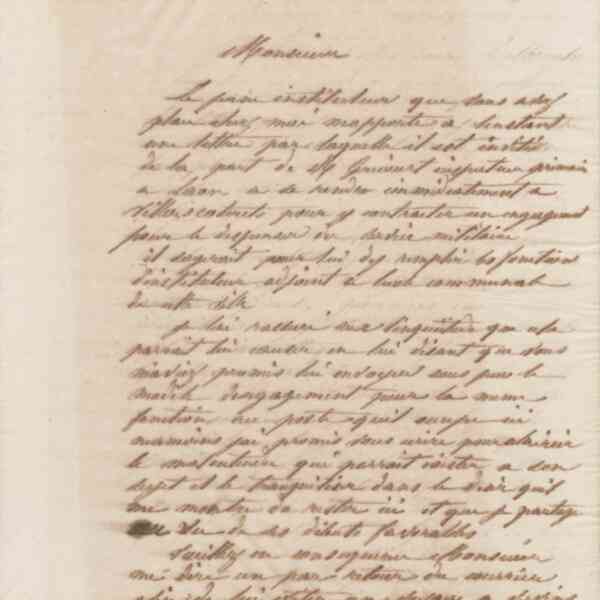 Monsieur
Le jeune instituteur que vous avez
placé chez moi m'apporte a l'instant
une lettre par laquelle il est invité
de la part de M inspecteur primaire
a Laon a se rendre immédiatement a
Villerscotterets pour y contracter un engagement
pour le dispenser du service militaire
il sagirait pour lui dy remplir les fonctions
dinstituteur adjoint a lecole communale
de cette ville
je lai rassuré sur linquiétude que cela
parait lui causer en lui disant que vous
maviez promis lui envoyer sous peu le
modele dengagement pour la meme
fonction au poste quil occupe ici
neanmoins jai promis vous écrire pour
le malentendu qui parrait exister a son
sujet et le tranquiliser dans le désir quil
me montre de rester ici et que je partage
vu de ses débuts favorables
Veuillez en conséquence Monsieur
me dire un par retour du courrier